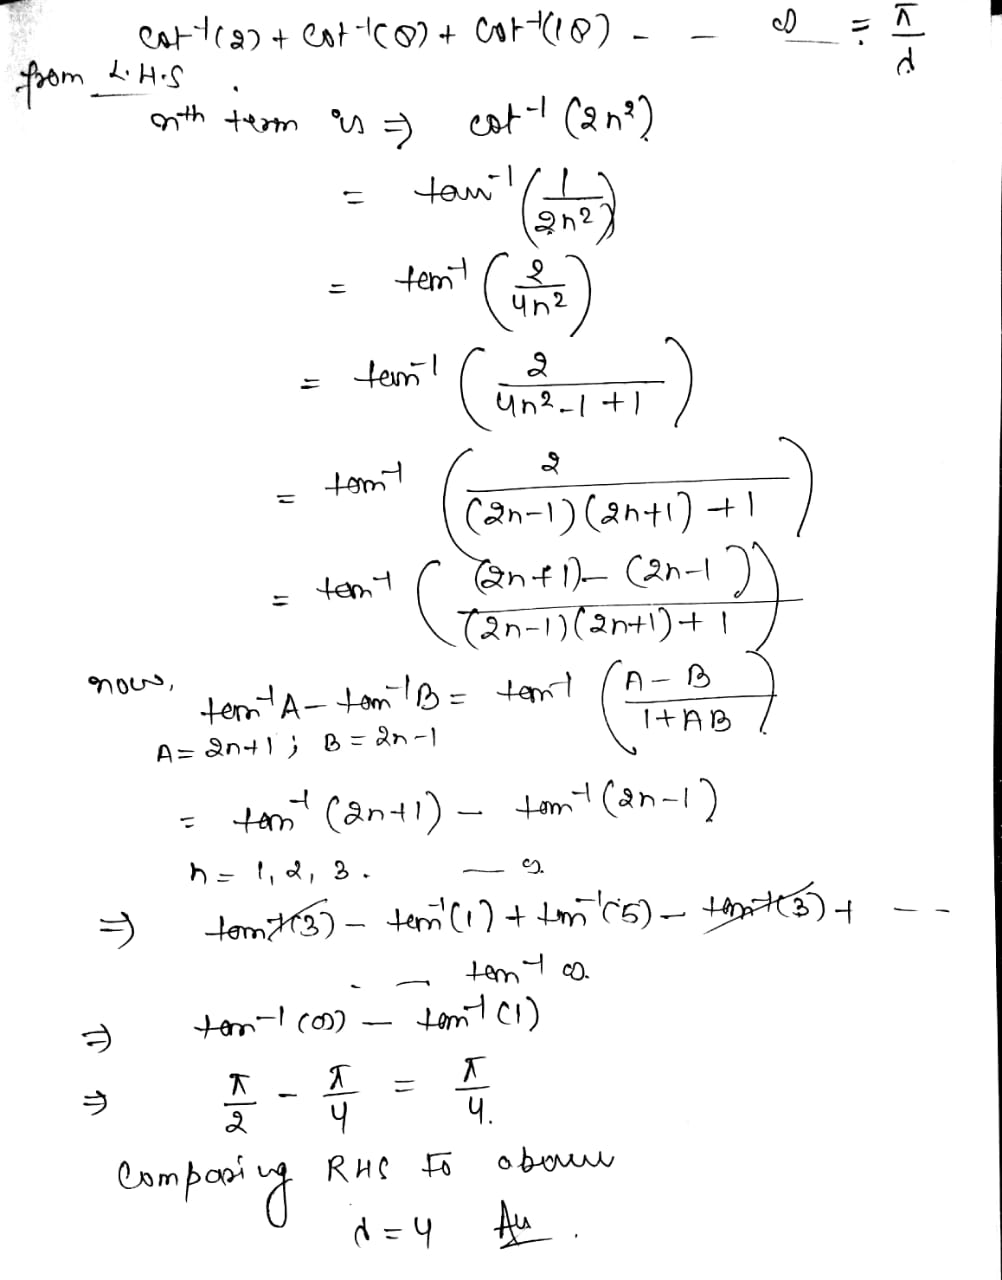 cot⁻¹(2) + cot⁻¹(8) + cot⁻¹(18) - - ∞ = π/d
from L.H.S
nth term is ⇒ cot⁻¹ (2n²)
= tan⁻¹ (1/2n²)
= tan⁻¹ (2/4n²)
= tan⁻¹ (2/4n²-1+1)
= tan⁻¹ (2/(2n-1)(2n+1)+1)
= tan⁻¹ ((2n+1)-(2n-1)/(2n-1)(2n+1)+1)
now,
tan⁻¹A - tan⁻¹B = tan⁻¹ (A-B/1+AB)
A = 2n+1 ; B = 2n-1
= tan⁻¹ (2n+1) - tan⁻¹ (2n-1)
n = 1, 2, 3. — ∞.
⇒ tan⁻¹(3) - tan⁻¹(1) + tan⁻¹(5) - tan⁻¹(3) + - -
. - tan⁻¹ ∞.
⇒ tan⁻¹(∞) - tan⁻¹(1)
⇒ π/2 - π/4 = π/4.
Comparing RHS to above
d = 4 Au.